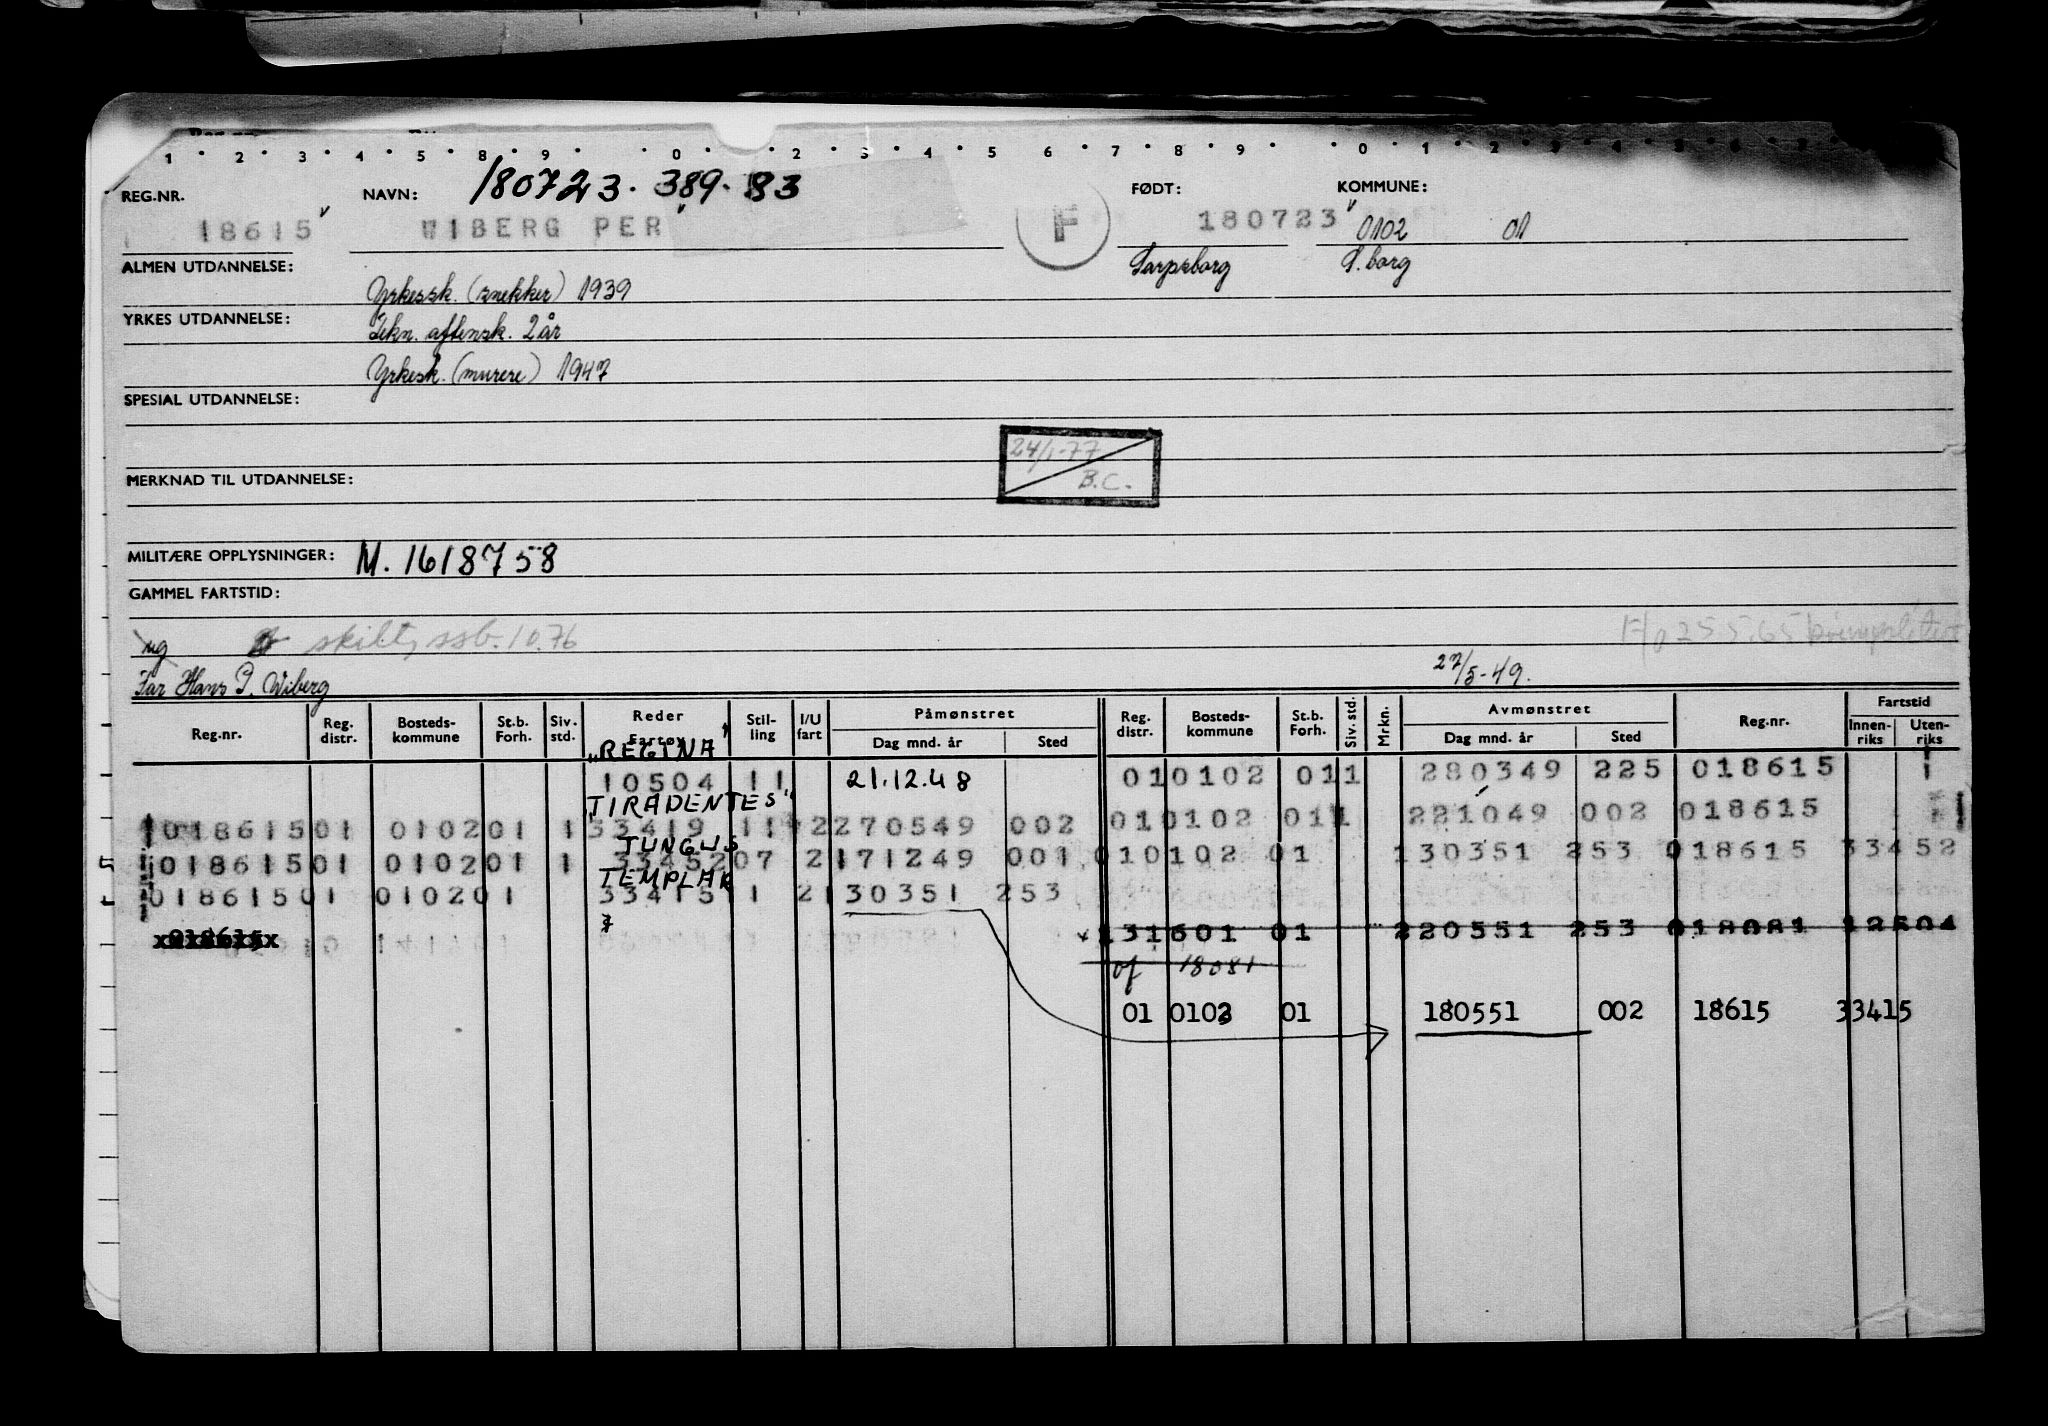 1 2 3 4 5 8 9 0 2 3 4 5 6 7 8 9 0 1 2 3 4 5
REG.NR. NAVN: 180723. 389. 83 FØDT: KOMMUNE:
18615 WIBERG PER F 180723 0102 01
ALMEN UTDANNELSE: Sarpsborg S. borg
Yrkessk. (snekker) 1939
YRKES UTDANNELSE: Tekn. aftensk. 2 år
Yrkesk. (murere) 1947
SPESIAL UTDANNELSE:
24/1-77
MERKNAD TIL UTDANNELSE: B.C.
MILITÆRE OPPLYSNINGER: M. 1618758
GAMMEL FARTSTID:
ug skilt, ssb. 10.76
Far Hans P. Wiberg 27/5-49.
Reg.nr. Reg. distr. Bosteds- kommune St.b. Forh. Siv. std. Reder Fartøy Stil- ling I/U fart Påmønstret Dag mnd. år Sted Reg. distr. Bosteds- kommune St.b. Forh. Siv. std. Mrkn. Avmønstret Dag mnd. år Sted Reg.nr. Fartstid Innen- riks Uten- riks
"REGINA"
10504 11 21.12.48 010102 011 280349 225 018615 1
"TIRADENTES"
01861501 010201 1 33419 11 2 270549 002 010102 011 221049 002 018615
TUNGUS
01861501 010201 1 3345207 2 171249 001 010102 01 130351 253 018615 33452
TEMPLAR
01861501 010201 33415 11 2 130351 253
018615 131601 01 220551 253 018081 12504
of 18081
01 0102 01 180551 002 18615 33415